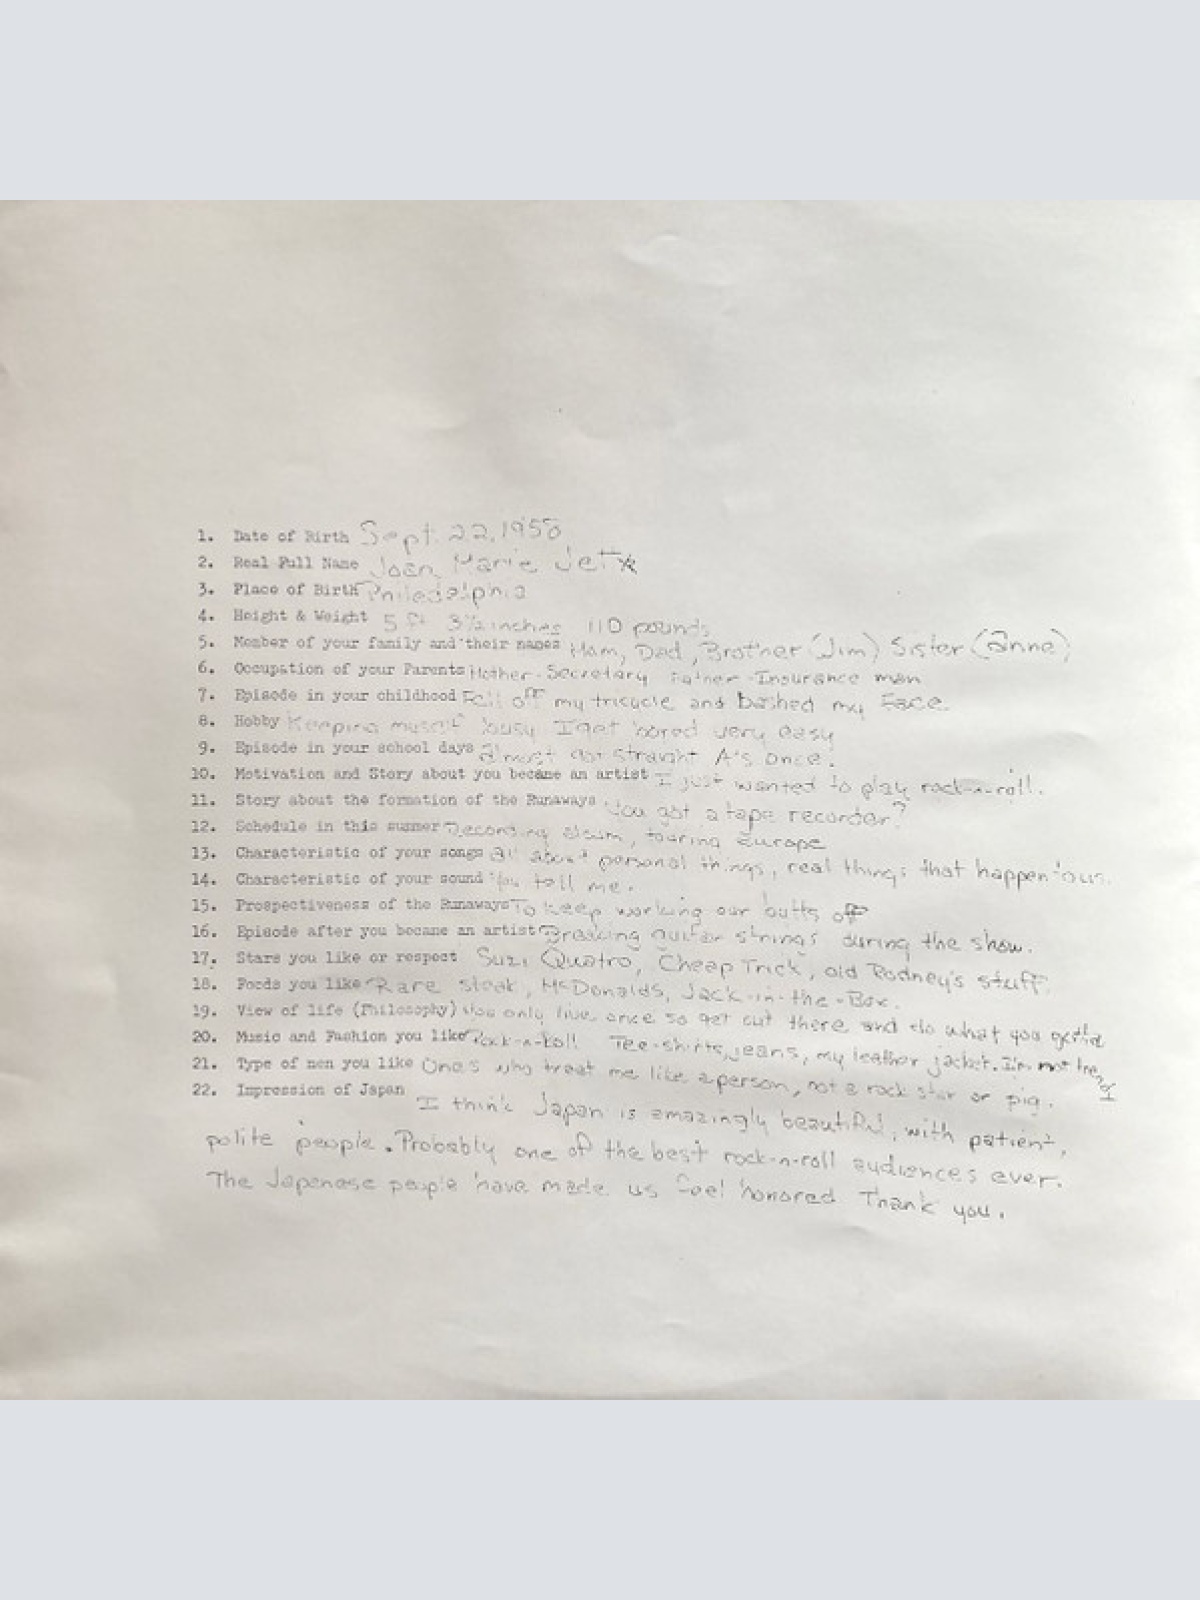 1. Date of Birth Sept. 22, 1958
2. Real Full Name Joan Marie Jett
3. Place of Birth Philedelphia
4. Height & Weight 5 ft 3½ inches 110 pounds
5. Member of your family and their names Mom, Dad, Brother (Jim) Sister (Anne)
6. Occupation of your Parents Mother-Secretary Father-Insurance man
7. Episode in your childhood Fell off my tricycle and bashed my face.
8. Hobby Keeping myself busy I get bored very easy
9. Episode in your school days Almost got straight A's once.
10. Motivation and Story about you became an artist I just wanted to play rock-n-roll.
11. Story about the formation of the Runaways You got a tape recorder?
12. Schedule in this summer Recording album, touring Europe
13. Characteristic of your songs All about personal things, real things that happen to us.
14. Characteristic of your sound You tell me.
15. Prospectiveness of the Runaways To keep working our butts off
16. Episode after you became an artist Breaking guitar strings during the show.
17. Stars you like or respect Suzi Quatro, Cheap Trick, old Rodney's stuff.
18. Foods you like Rare steak, McDonalds, Jack-in-the-Box.
19. View of life (Philosophy) You only live once so get out there and do what you gotta
20. Music and Fashion you like Rock-n-Roll Tee-shirts, jeans, my leather jacket. I'm not trendy
21. Type of men you like Ones who treat me like a person, not a rock star or pig.
22. Impression of Japan I think Japan is amazingly beautiful, with patient,
polite people. Probably one of the best rock-n-roll audiences ever.
The Japanese people have made us feel honored Thank you.